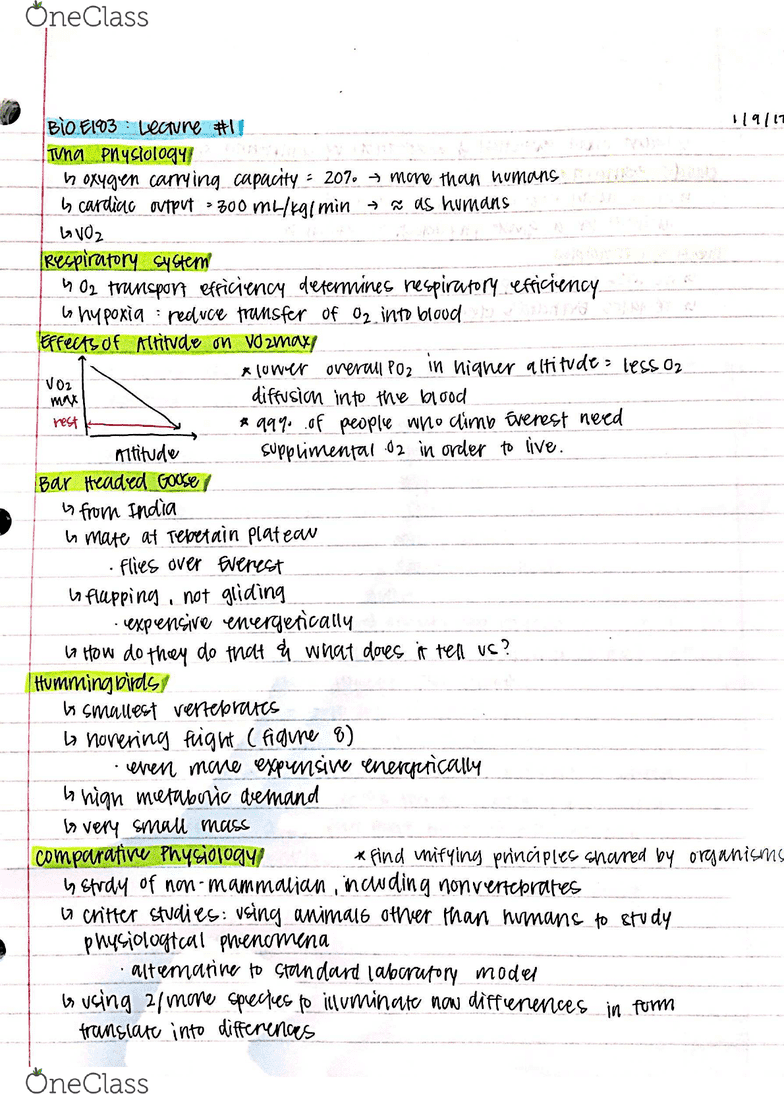 OneClass
BIOE183: Lecture #1
1/9/17
Tuna Physiology
↳ oxygen carrying capacity = 20% → more than humans
↳ cardiac output = 300 mL/kg/min → ≈ as humans
↳ VO2
Respiratory system
↳ O2 transport efficiency determines respiratory efficiency
↳ hypoxia: reduce transfer of O2 into blood
Effects of Altitude on VO2max
VO2
max
rest
Altitude
* lower overall PO2 in higher altitude = less O2
diffusion into the blood
* 99% of people who climb Everest need
supplimental O2 in order to live.
Bar Headed Goose
↳ from India
↳ mate at Tebetain Plateau
· flies over Everest
↳ flapping, not gliding
· expensive energetically
↳ How do they do that & what does it tell us?
Hummingbirds
↳ smallest vertebrates
↳ hovering flight (figure 8)
· even more expensive energetically
↳ high metabolic demand
↳ very small mass
Comparative Physiology
* find unifying principles shared by organisms
↳ study of non-mammalian, including nonvertebrates
↳ critter studies: using animals other than humans to study
physiological phenomena
· alternative to standard laboratory model
↳ using 2/more species to illuminate how differences in form
translate into differences
OneClass